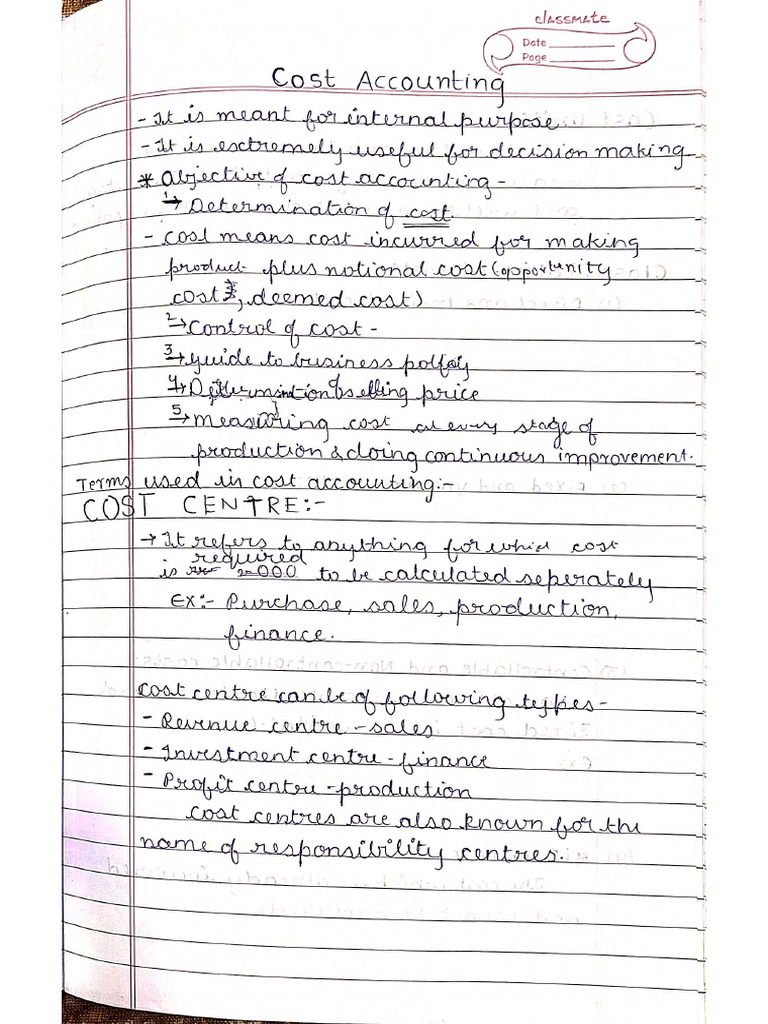 classmate
Date
Page
Cost Accounting
- It is meant for internal purpose
- It is extremely useful for decision making
* Objective of cost accounting -
1→ Determination of cost.
- Cost means cost incurred for making
product plus notional cost (opportunity
cost, deemed cost)
2→ Control of cost -
3→ Guide to business policy
4→ Determination of selling price
5→ Measuring cost at every stage of
production & doing continuous improvement.
Terms used in cost accounting:-
COST CENTRE:-
→ It refers to anything for which cost
is required to be calculated seperately
EX:- Purchase, sales, production,
finance.
Cost centre can be of following types -
- Revenue centre - sales
- Investment centre - finance
- Profit centre - production
Cost centres are also known for the
name of responsibility centres.